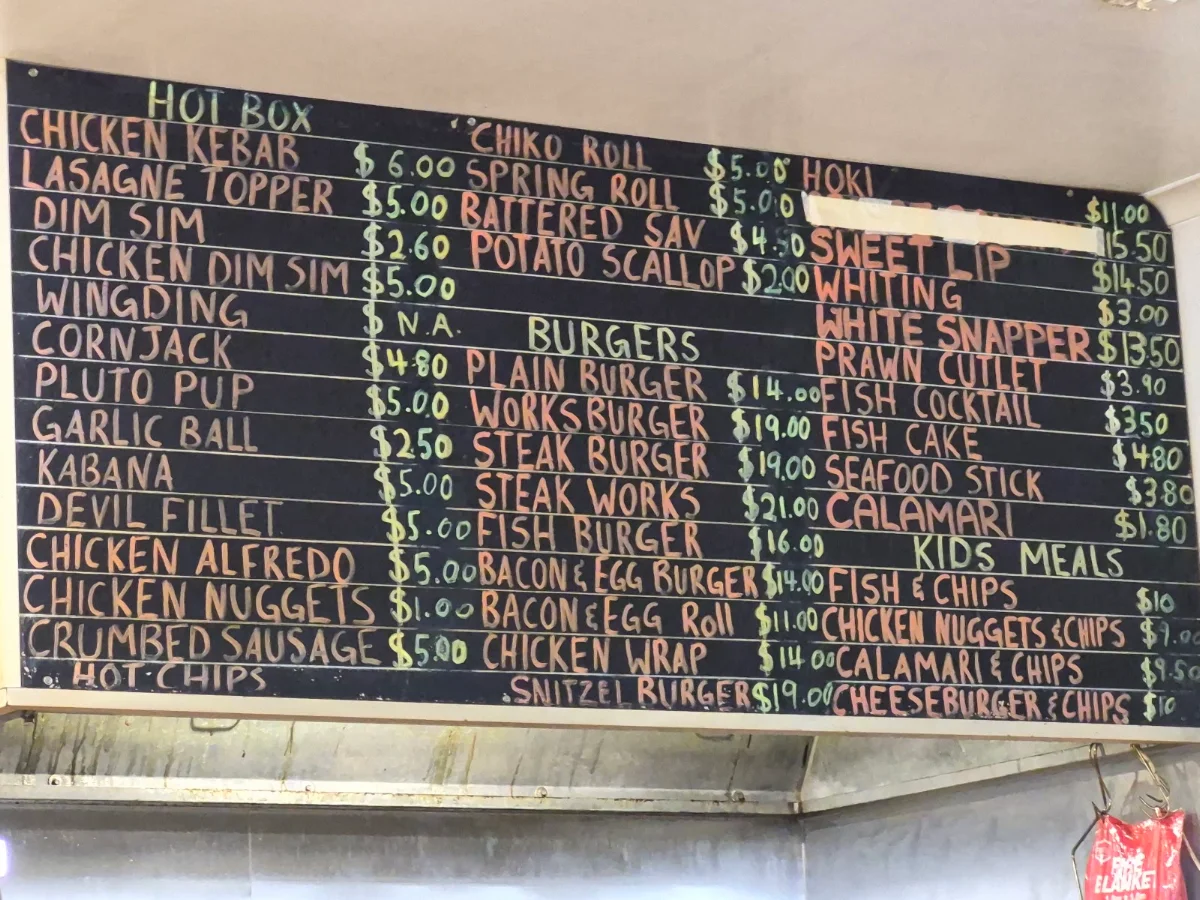 HOT BOX
CHICKEN KEBAB $6.00
LASAGNE TOPPER $5.00
DIM SIM $2.60
CHICKEN DIM SIM $5.00
WINGDING $ N.A.
CORNJACK $4.80
PLUTO PUP $5.00
GARLIC BALL $2.50
KABANA $5.00
DEVIL FILLET $5.00
CHICKEN ALFREDO $5.00
CHICKEN NUGGETS $1.00
CRUMBED SAUSAGE $5.00
HOT CHIPS
CHIKO ROLL $5.00
SPRING ROLL $5.00
BATTERED SAV $4.50
POTATO SCALLOP $2.00
BURGERS
PLAIN BURGER $14.00
WORKS BURGER $19.00
STEAK BURGER $19.00
STEAK WORKS $21.00
FISH BURGER $16.00
BACON & EGG BURGER $14.00
BACON & EGG Roll $11.00
CHICKEN WRAP $14 00
SNITZEL BURGER $19.00
HOKI $11.00
15.50
SWEET LIP $14.50
WHITING $3.00
WHITE SNAPPER $13.50
PRAWN CUTLET $3.90
FISH COCKTAIL $350
FISH CAKE $4.80
SEAFOOD STICK $3.80
CALAMARI $1.80
KIDS MEALS
FISH & CHIPS $10
CHICKEN NUGGETS & CHIPS
CALAMARI & CHIPS $9.50
CHEESEBURGER & CHIPS $10
FIRE
BLANKET